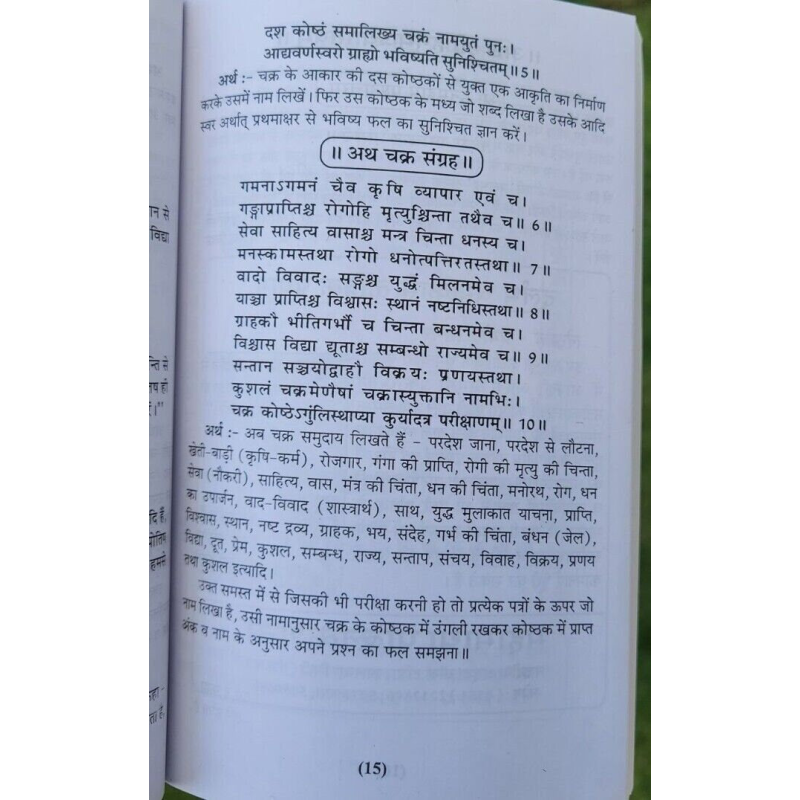 दश कोष्ठं समालिख्य चक्रं नामयुतं पुनः।
आद्यवर्णस्वरो ग्राह्यो भविष्यति सुनिश्चितम्॥5॥
अर्थ :- चक्र के आकार की दस कोष्ठकों से युक्त एक आकृति का निर्माण
करके उसमें नाम लिखें। फिर उस कोष्ठक के मध्य जो शब्द लिखा है उसके आदि
स्वर अर्थात् प्रथमाक्षर से भविष्य फल का सुनिश्चित ज्ञान करें।
॥ अथ चक्र संग्रह॥
गमनाऽगमनं चैव कृषि व्यापार एवं च।
गङ्गाप्राप्तिश्च रोगोहि मृत्युश्चिन्ता तथैव च॥ 6॥
सेवा साहित्य वासाश्च मन्त्र चिन्ता धनस्य च।
मनस्कामस्तथा रोगो धनोत्पत्तिरतस्तथा॥ 7॥
वादो विवादः सङ्गश्च युद्धं मिलनमेव च।
याच्ञा प्राप्तिश्च विश्वासः स्थानं नष्टनिधिस्तथा॥ 8॥
ग्राहकौ भीतिगर्भौ च चिन्ता बन्धनमेव च।
विश्वास विद्या द्यूताश्च सम्बन्धो राज्यमेव च॥ 9॥
सन्तान सञ्चयोद्वाहौ विक्रयः प्रणयस्तथा।
कुशलं चक्रमेणैषां चक्रास्युक्तानि नामभिः।
चक्र कोष्ठेऽगुंलिस्थाप्या कुर्यादत्र परीक्षाणम्॥ 10॥
अर्थ :- अब चक्र समुदाय लिखते हैं - परदेश जाना, परदेश से लौटना,
खेती-बाड़ी (कृषि-कर्म), रोजगार, गंगा की प्राप्ति, रोगी की मृत्यु की चिन्ता,
सेवा (नौकरी), साहित्य, वास, मंत्र की चिंता, धन की चिंता, मनोरथ, रोग, धन
का उपार्जन, वाद-विवाद (शास्त्रार्थ), साथ, युद्ध मुलाकात याचना, प्राप्ति,
विश्वास, स्थान, नष्ट द्रव्य, ग्राहक, भय, संदेह, गर्भ की चिंता, बंधन (जेल),
विद्या, दूत, प्रेम, कुशल, सम्बन्ध, राज्य, सन्ताप, संचय, विवाह, विक्रय, प्रणय
तथा कुशल इत्यादि।
उक्त समस्त में से जिसकी भी परीक्षा करनी हो तो प्रत्येक पत्रों के ऊपर जो
नाम लिखा है, उसी नामानुसार चक्र के कोष्ठक में उंगली रखकर कोष्ठक में प्राप्त
अंक व नाम के अनुसार अपने प्रश्न का फल समझना॥
(15)